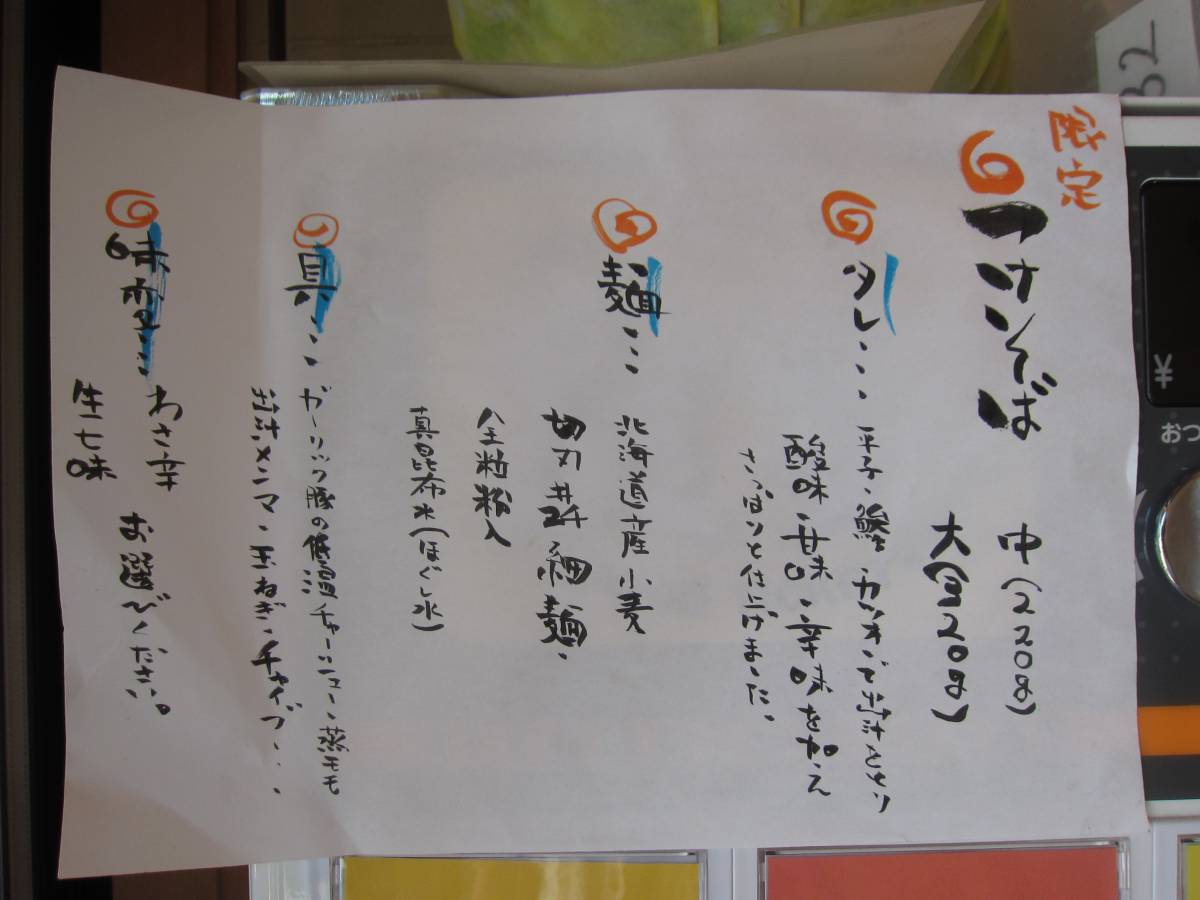 限定
つけそば
中(220g)
大(320g)
タレ・・・平子・鯵・カツオで出汁をとり
酸味・甘味・辛味を加え
さっぱりと仕上げました。
麺・・・北海道産小麦
切刃#24 細麺・
全粒粉入
真昆布水(ほぐし水)
具・・・ガーリック豚の低温チャーシュー・蒸モモ
出汁メンマ・玉ねぎ・チャイブ・・・
味変・・・わさ辛
生七味
お選びください。
32
¥
おつ